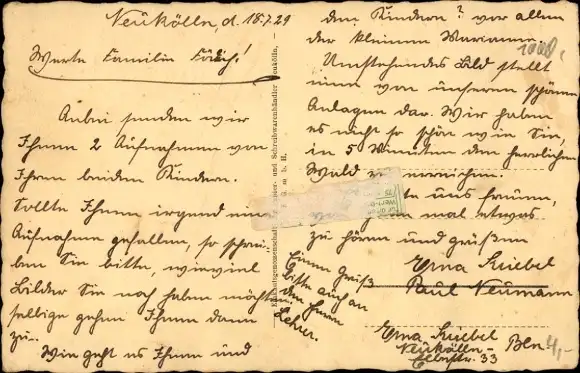 Neukölln, d. 18.7.29
Werte Familie
Anbei senden wir
Ihnen 2 Aufnahmen von
Ihren beiden Kindern.
Sollte Ihnen irgend eine
Aufnahme gefallen, so schrei-
ben Sie bitte, wieviel
Bilder Sie noch haben möchten
selbige gehen Ihnen dann
zu.
Wie geht es Ihnen und
Einkaufsgenossenschaft Papier- und Schreibwarenhändler Neukölln,
G. m. b. H.
den Kindern? vor allem
der kleinen Marianne.
1000,
Umstehendes Bild stellt
eine von unseren schönen
Anlagen dar. Wir haben
es nicht so schön wie Sie,
in 5 Minuten den herrlichen
Wald zu erreichen.
uns freuen,
mal etwas
zu hören und grüßen
Erna Kiebel
Paul Neumann
Einen Gruß
bitte auch an
den Herrn
Lehrer.
Erna Kiebel
Neukölln - Bln
Elbestr. 33
4,-